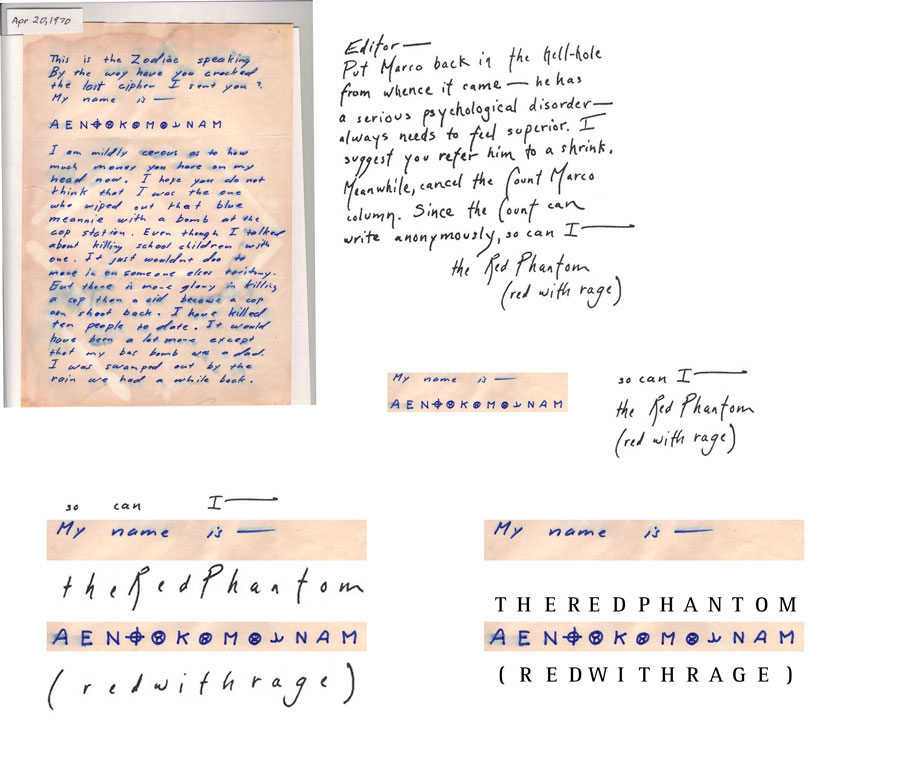 Apr 20, 1970
This is the Zodiac speaking
By the way have you cracked
the last cipher I sent you?
My name is —
A E N ⌖ ⊗ K ⊗ M ⊗ ⅃ N A M
I am mildly cerous as to how
much money you have on my
head now. I hope you do not
think that I was the one
who wiped out that blue
meannie with a bomb at the
cop station. Even though I talked
about killing school children with
one. It just wouldnt doo to
move in on someone elses teritory.
But there is more glory in killing
a cop than a cid because a cop
can shoot back. I have killed
ten people to date. It would
have been a lot more except
that my bus bomb was a dud.
I was swamped out by the
rain we had a while back.
Editor—
Put Marco back in the hell-hole
from whence it came — he has
a serious psychological disorder—
always needs to feel superior. I
suggest you refer him to a shrink.
Meanwhile, cancel the Count Marco
column. Since the Count can
write anonymously, so can I—
the Red Phantom
(red with rage)
My name is —
A E N ⌖ ⊗ K ⊗ M ⊗ ⅃ N A M
so can I—
the Red Phantom
(red with rage)
so can I—
My name is —
theRedPhantom
A E N ⌖ ⊗ K ⊗ M ⊗ ⅃ N A M
(redwithrage)
My name is —
THEREDPHANTOM
A E N ⌖ ⊗ K ⊗ M ⊗ ⅃ N A M
(REDWITHRAGE)